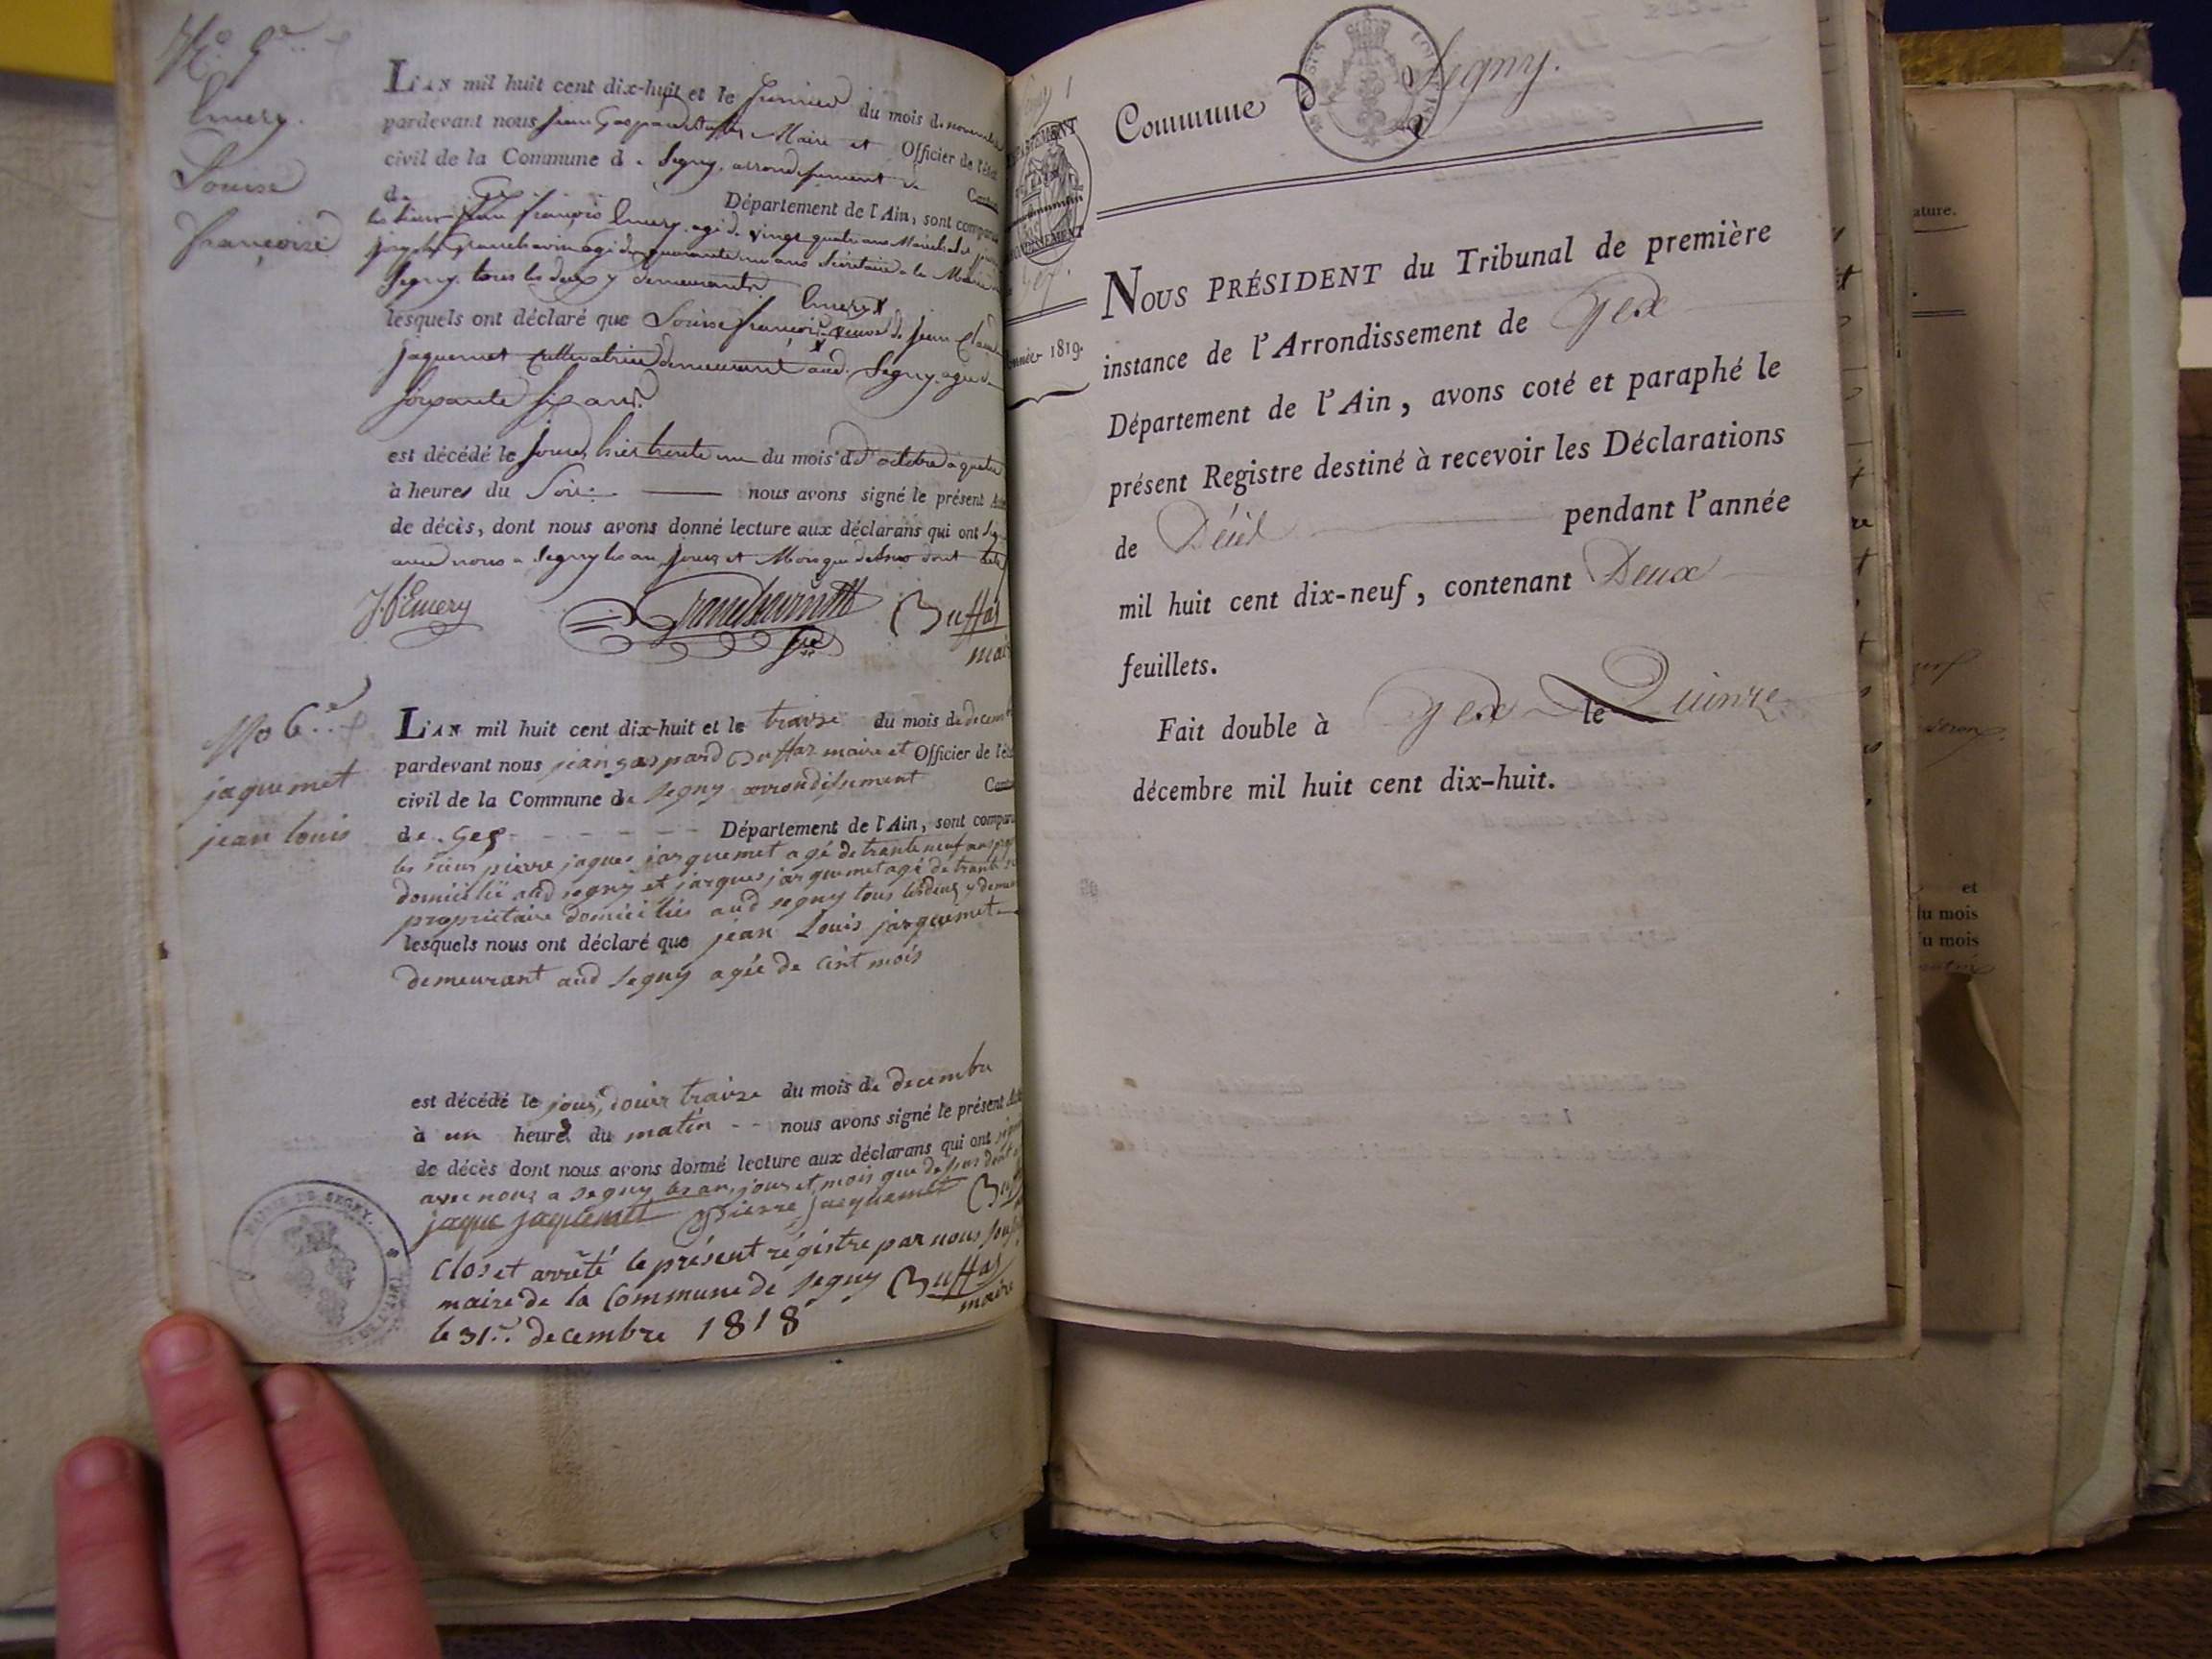 No 5e
Emery
Louise
françoise
L'AN mil huit cent dix-huit et le premier du mois de novembre
pardevant nous jean Gaspard Buffaz Maire et Officier de l'état
civil de la Commune de Segny, arrondissement de Canton
de Gex Département de l'Ain, sont comparu
les sieurs jean françois Emery agé de vingt quatre ans Maréchal et
joseph Grancharvin agé de quarante un ans Secrétaire a la Mairie
Segny tous les deux y demeurants
lesquels ont déclaré que Louise françoise Emery veuve de jean Claude
jaquemet cultivatrice demeurant aud. Segny agée de
soixante six ans
est décédé le jour hier trente un du mois d'octobre a quatre
à heures du Soir nous avons signé le présent Acte
de décès, dont nous avons donné lecture aux déclarans qui ont sig
avec nous a Segny les an, jour et Mois que dessus dont acte
J f Emery Grancharvin Buffaz
sre maire
No 6e
jaquemet
jean louis
L'AN mil huit cent dix-huit et le traize du mois de decembre
pardevant nous jean gaspard Buffaz maire et Officier de l'état
civil de la Commune de Segny arrondissement Canton
de Gex Département de l'Ain, sont comparu
les sieurs pierre jaques jarquemet agé de trante neuf ans
domicilié aud segny et jarques jarquemet agé de trante
proprietaire domiciliés aud segny tous lesdeux y demeu
lesquels nous ont déclaré que jean Louis jarquemet
demeurant aud segny agée de cint mois
est décédé le jour, douix traize du mois de decembre
à un heure du matin - - nous avons signé le présent Acte
de décès dont nous avons donné lecture aux déclarans qui ont signé
avec nous a segny les an, jour et, mois que dessus dont
jaque jaquemet Pierre Jacquemet Bu
Clos et arrêté le présent régistre par nous sous
maire de la Commune de segny Buffaz
le 31.e decembre 1818 maire
MAIRIE DE SEGNY.
Commune de Segny.
DÉPARTEMENT
ARRONDISSEMENT
Gex
Année 1819.
NOUS PRÉSIDENT du Tribunal de première
instance de l'Arrondissement de Gex
Département de l'Ain, avons coté et paraphé le
présent Registre destiné à recevoir les Déclarations
de Décès pendant l'année
mil huit cent dix-neuf, contenant Deux
feuillets.
Fait double à Gex le Quinze
décembre mil huit cent dix-huit.
ature.
et
du mois
u mois